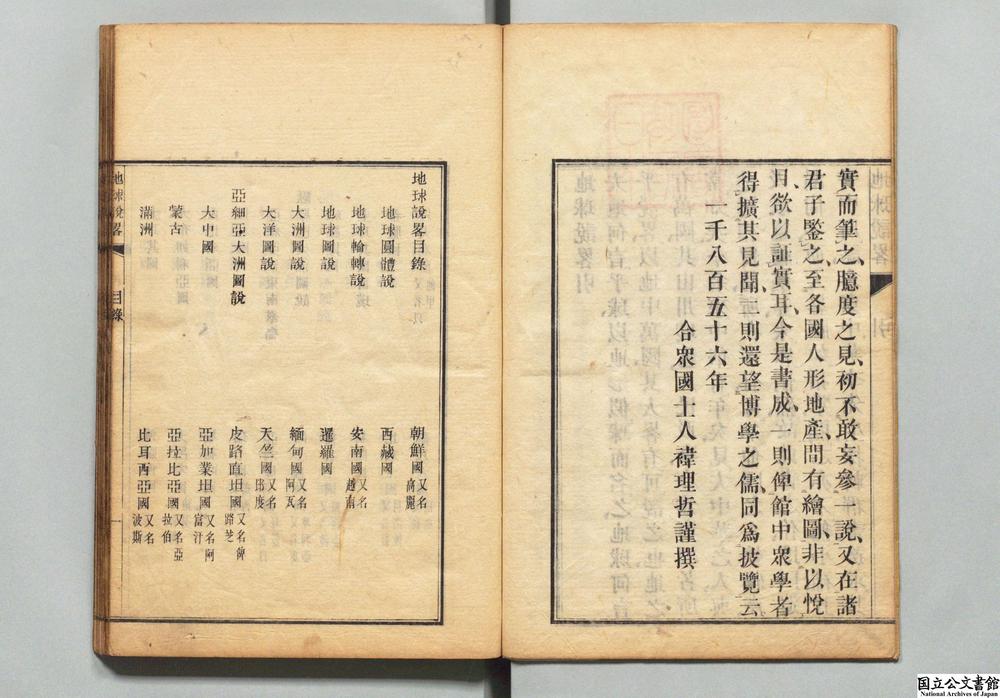 實而筆之、臆度之見、初不敢妄參一說、又在諸
君子鑒之、至各國人形地產、間有繪圖、非以悅
目、欲以証實耳、今是書成、一則俾館中衆學者
得擴其見聞、二則還望博學之儒、同爲披覽云、
一千八百五十六年
合衆國士人褘理哲謹撰
地球說畧目錄
地球圓體說
地球輪轉說
地球圖說
大洲圖說
大洋圖說
亞細亞大洲圖說
大中國
蒙古
滿洲
朝鮮國又名高麗
西域國
安南國又名越南
暹羅國
緬甸國又名阿瓦
天竺國又名印度
皮路直坦國又名俾路芝
亞加業坦國又名阿富汗
亞拉比亞國又名亞拉伯
比耳西亞國又名波斯
地球說畧
目錄
一
国立公文書館
National Archives of Japan